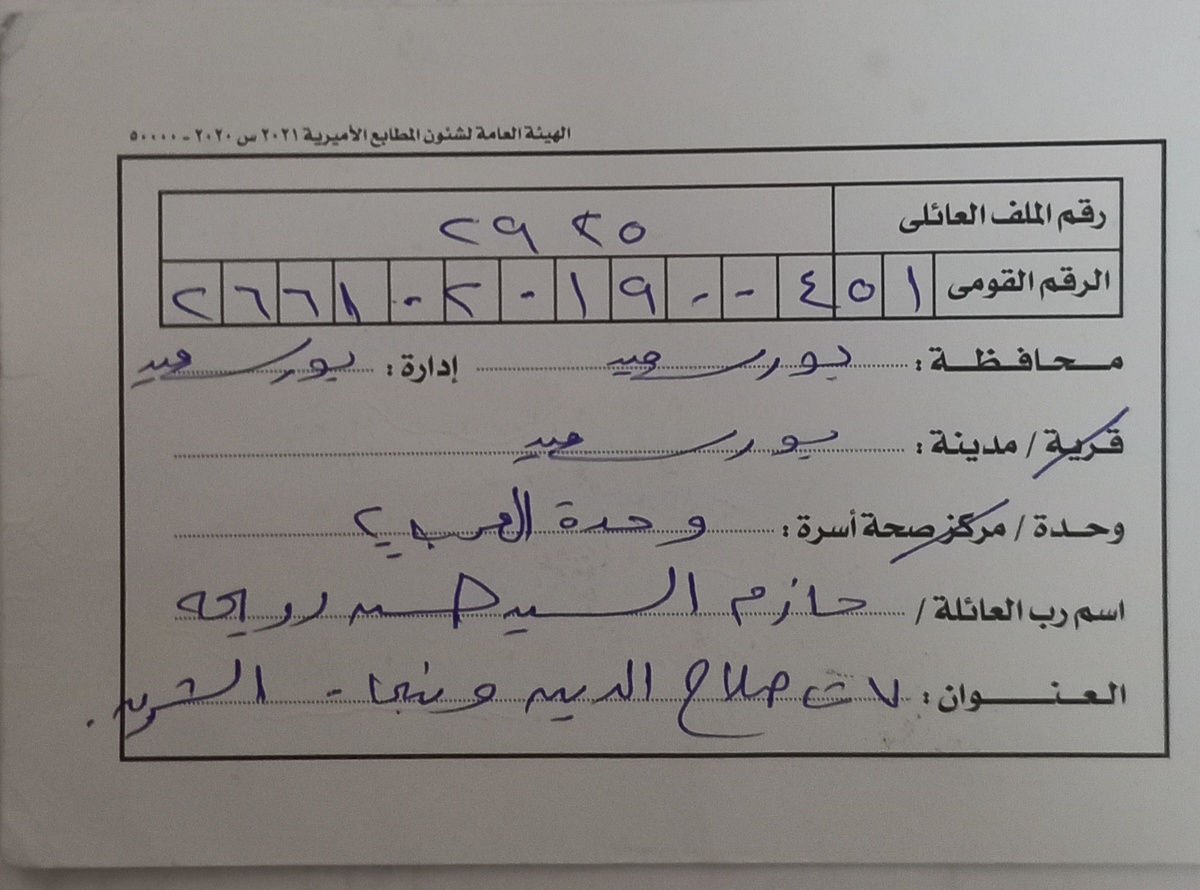 الهيئة العامة لشئون المطابع الأميرية ٢٠٢١ س ٢٠٢٠ - ٥٠٠٠٠
رقم الملف العائلى ٢٩٢٥
الرقم القومى ٢٦٦١٠٢٠١٩٠٠٤٥١
محافظة : بورسعيد إدارة : بورسعيد
قرية / مدينة : بورسعيد
وحدة / مركز صحة أسرة : وحدة العرب
اسم رب العائلة / حازم السيد
العنوان : ش صلاح الدين